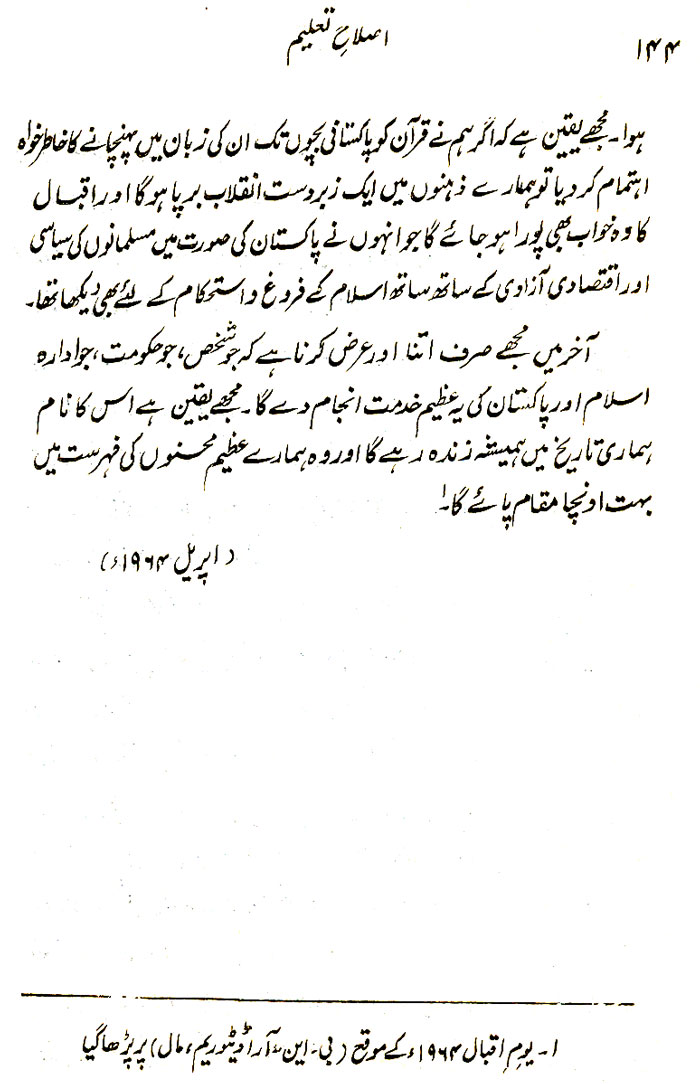 ۱۴۴
اصلاحِ تعلیم
ہوا۔ مجھے یقین ہے کہ اگر ہم نے قرآن کو پاکستانی بچوں تک ان کی زبان میں پہنچانے کا خاطر خواہ
اہتمام کر دیا تو ہمارے ذہنوں میں ایک زبردست انقلاب برپا ہو گا اور اقبال
کا وہ خواب بھی پورا ہو جائے گا جو انہوں نے پاکستان کی صورت میں مسلمانوں کی سیاسی
اور اقتصادی آزادی کے ساتھ ساتھ اسلام کے فروغ و استحکام کے لئے بھی دیکھا تھا۔
آخر میں مجھے صرف اتنا اور عرض کرنا ہے کہ جو شخص، جو حکومت، جو ادارہ
اسلام اور پاکستان کی یہ عظیم خدمت انجام دے گا۔ مجھے یقین ہے اس کا نام
ہماری تاریخ میں ہمیشہ زندہ رہے گا اور وہ ہمارے عظیم محسنوں کی فہرست میں
بہت اونچا مقام پائے گا۔۱
(اپریل ۱۹۶۴ء)
۱۔ یومِ اقبال ۱۹۶۴ء کے موقع (بی۔ این۔ آر آڈیٹوریم، مال) پر پڑھا گیا